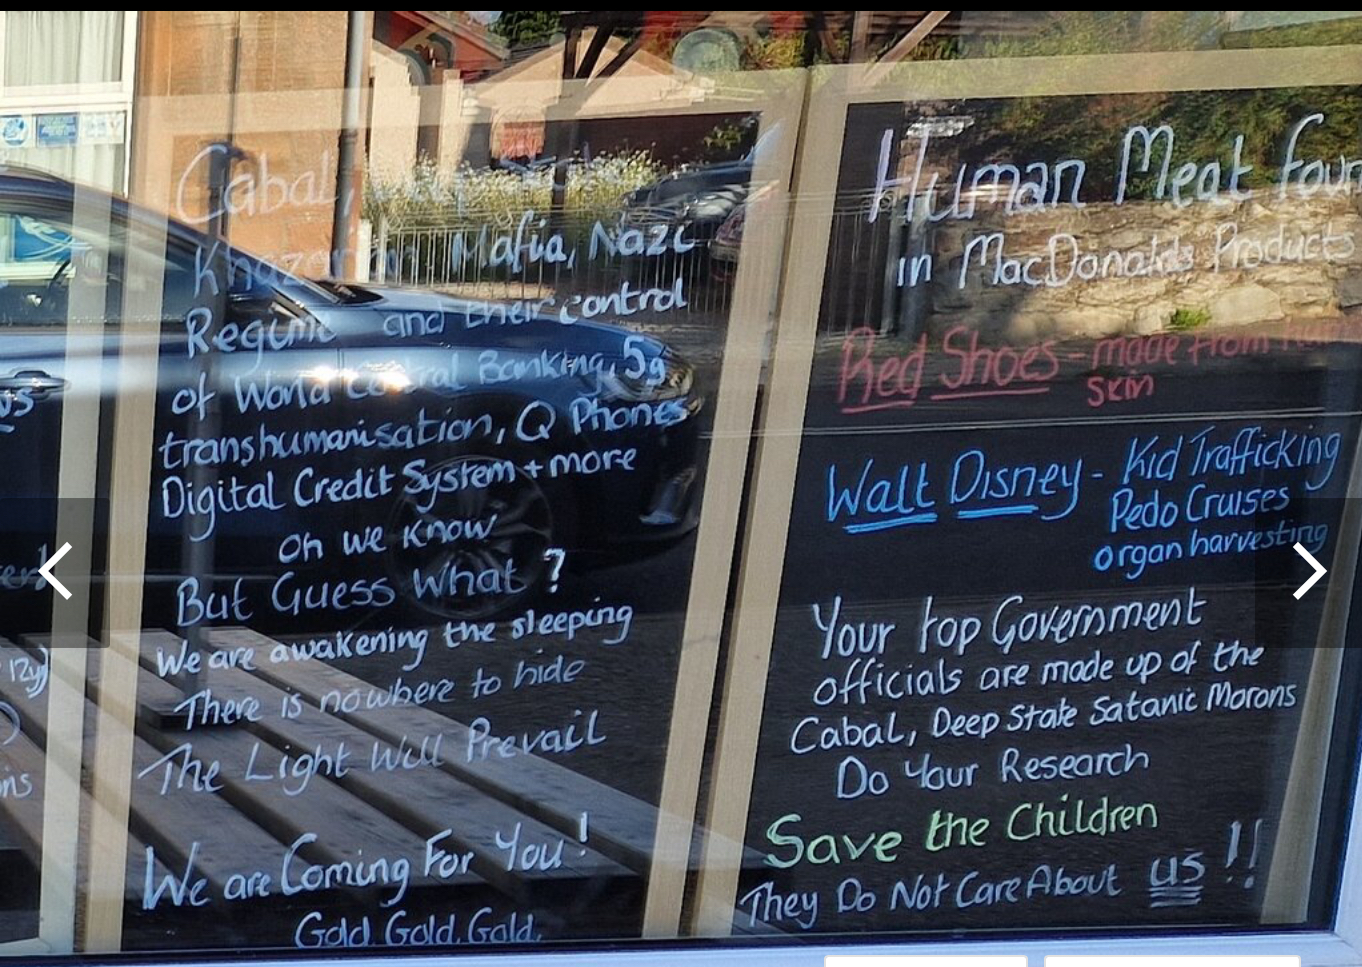 Cabal,
Khazarian Mafia, Nazi
Regime and their control
of World Central Banking, 5g
transhumanisation, Q Phones
Digital Credit System + more
Oh we know
But Guess What ?
We are awakening the sleeping
There is nowhere to hide
The Light Will Prevail
We are Coming For You!
Gold, Gold, Gold,
Human Meat Foun
in MacDonalds Products
Red Shoes - made from hum
skin
Walt Disney - Kid Trafficking
Pedo Cruises
organ harvesting
Your top Government
officials are made up of the
Cabal, Deep State Satanic Morons
Do Your Research
Save the Children
They Do Not Care About us !!
12y)